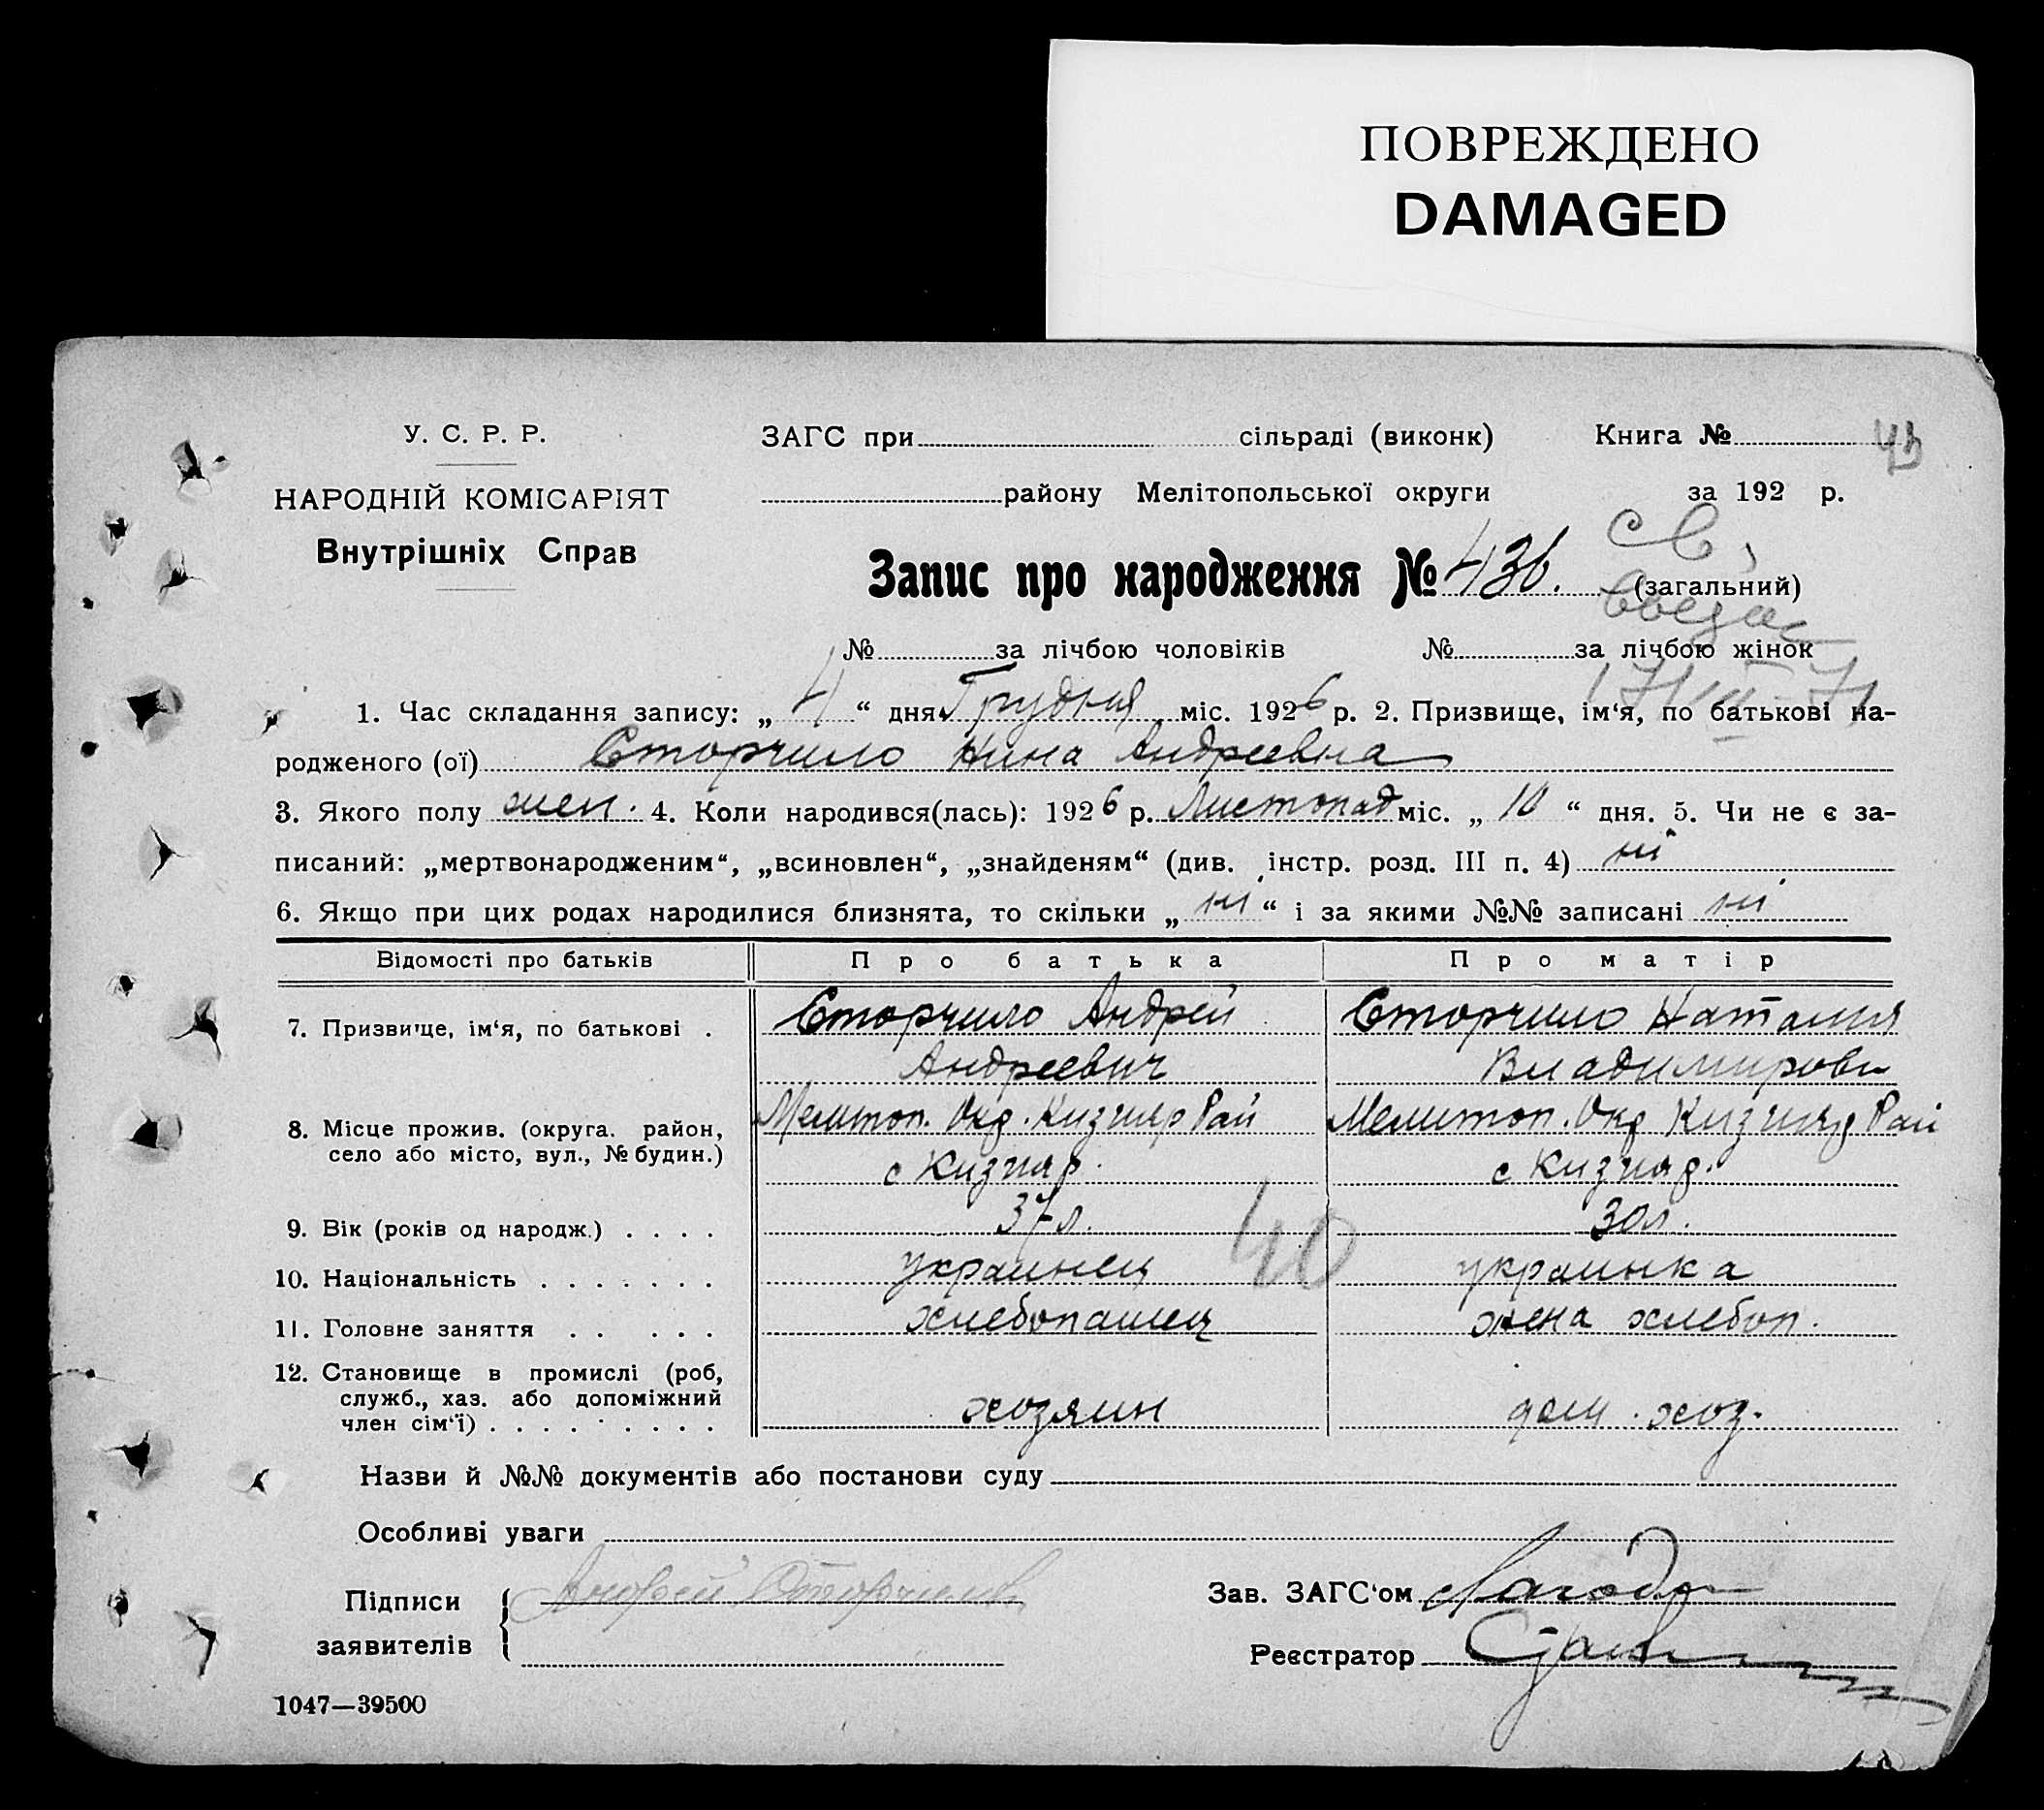 ПОВРЕЖДЕНО
DAMAGED
У. С. Р. Р. ЗАГС при сільраді (виконк) Книга № 43
НАРОДНІЙ КОМІСАРІЯТ району Мелітопольської округи за 192 р.
Внутрішніх Справ
св,
Запис про народження № 436. (загальний)
№ за лічбою чоловіків № за лічбою жінок
1. Час складання запису: „ 4 “ дня Грудня міс. 1926 р. 2. Призвище, ім‘я, по батькові на-
родженого (ої) Сторчило Нина Андреевна
3. Якого полу жен. 4. Коли народився(лась): 1926 р. Листопад міс. „ 10 “ дня. 5. Чи не є за-
писаний: „мертвонародженим“, „всиновлен“, „знайденям“ (див. інстр. розд. III п. 4) ні
6. Якщо при цих родах народилися близнята, то скільки „ ні “ і за якими №№ записані ні
Відомості про батьків Про батька Про матір
7. Призвище, ім‘я, по батькові . Сторчило Андрей Сторчило Наталия
Андреевич Владимировн
8. Місце прожив. (округа. район, Мелитоп. Окр. Кизияр Рай Мелитоп. Окр Кизияр Рай
село або місто, вул., № будин.) с Кизияр. с Кизияр.
9. Вік (років од народж.) . . . . 37 л. 30 л.
40
10. Національність . . . . . . . украинец украинка
11. Головне заняття . . . . . хлебопашец жена хлебоп.
12. Становище в промислі (роб,
служб., хаз. або допоміжний
член сім‘ї) . . . . . . . . хозяин дом. хоз.
Назви й №№ документів або постанови суду
Особливі уваги
Підписи Андрей Сторчило Зав. ЗАГС‘ом
заявителів Реєстратор
1047—39500